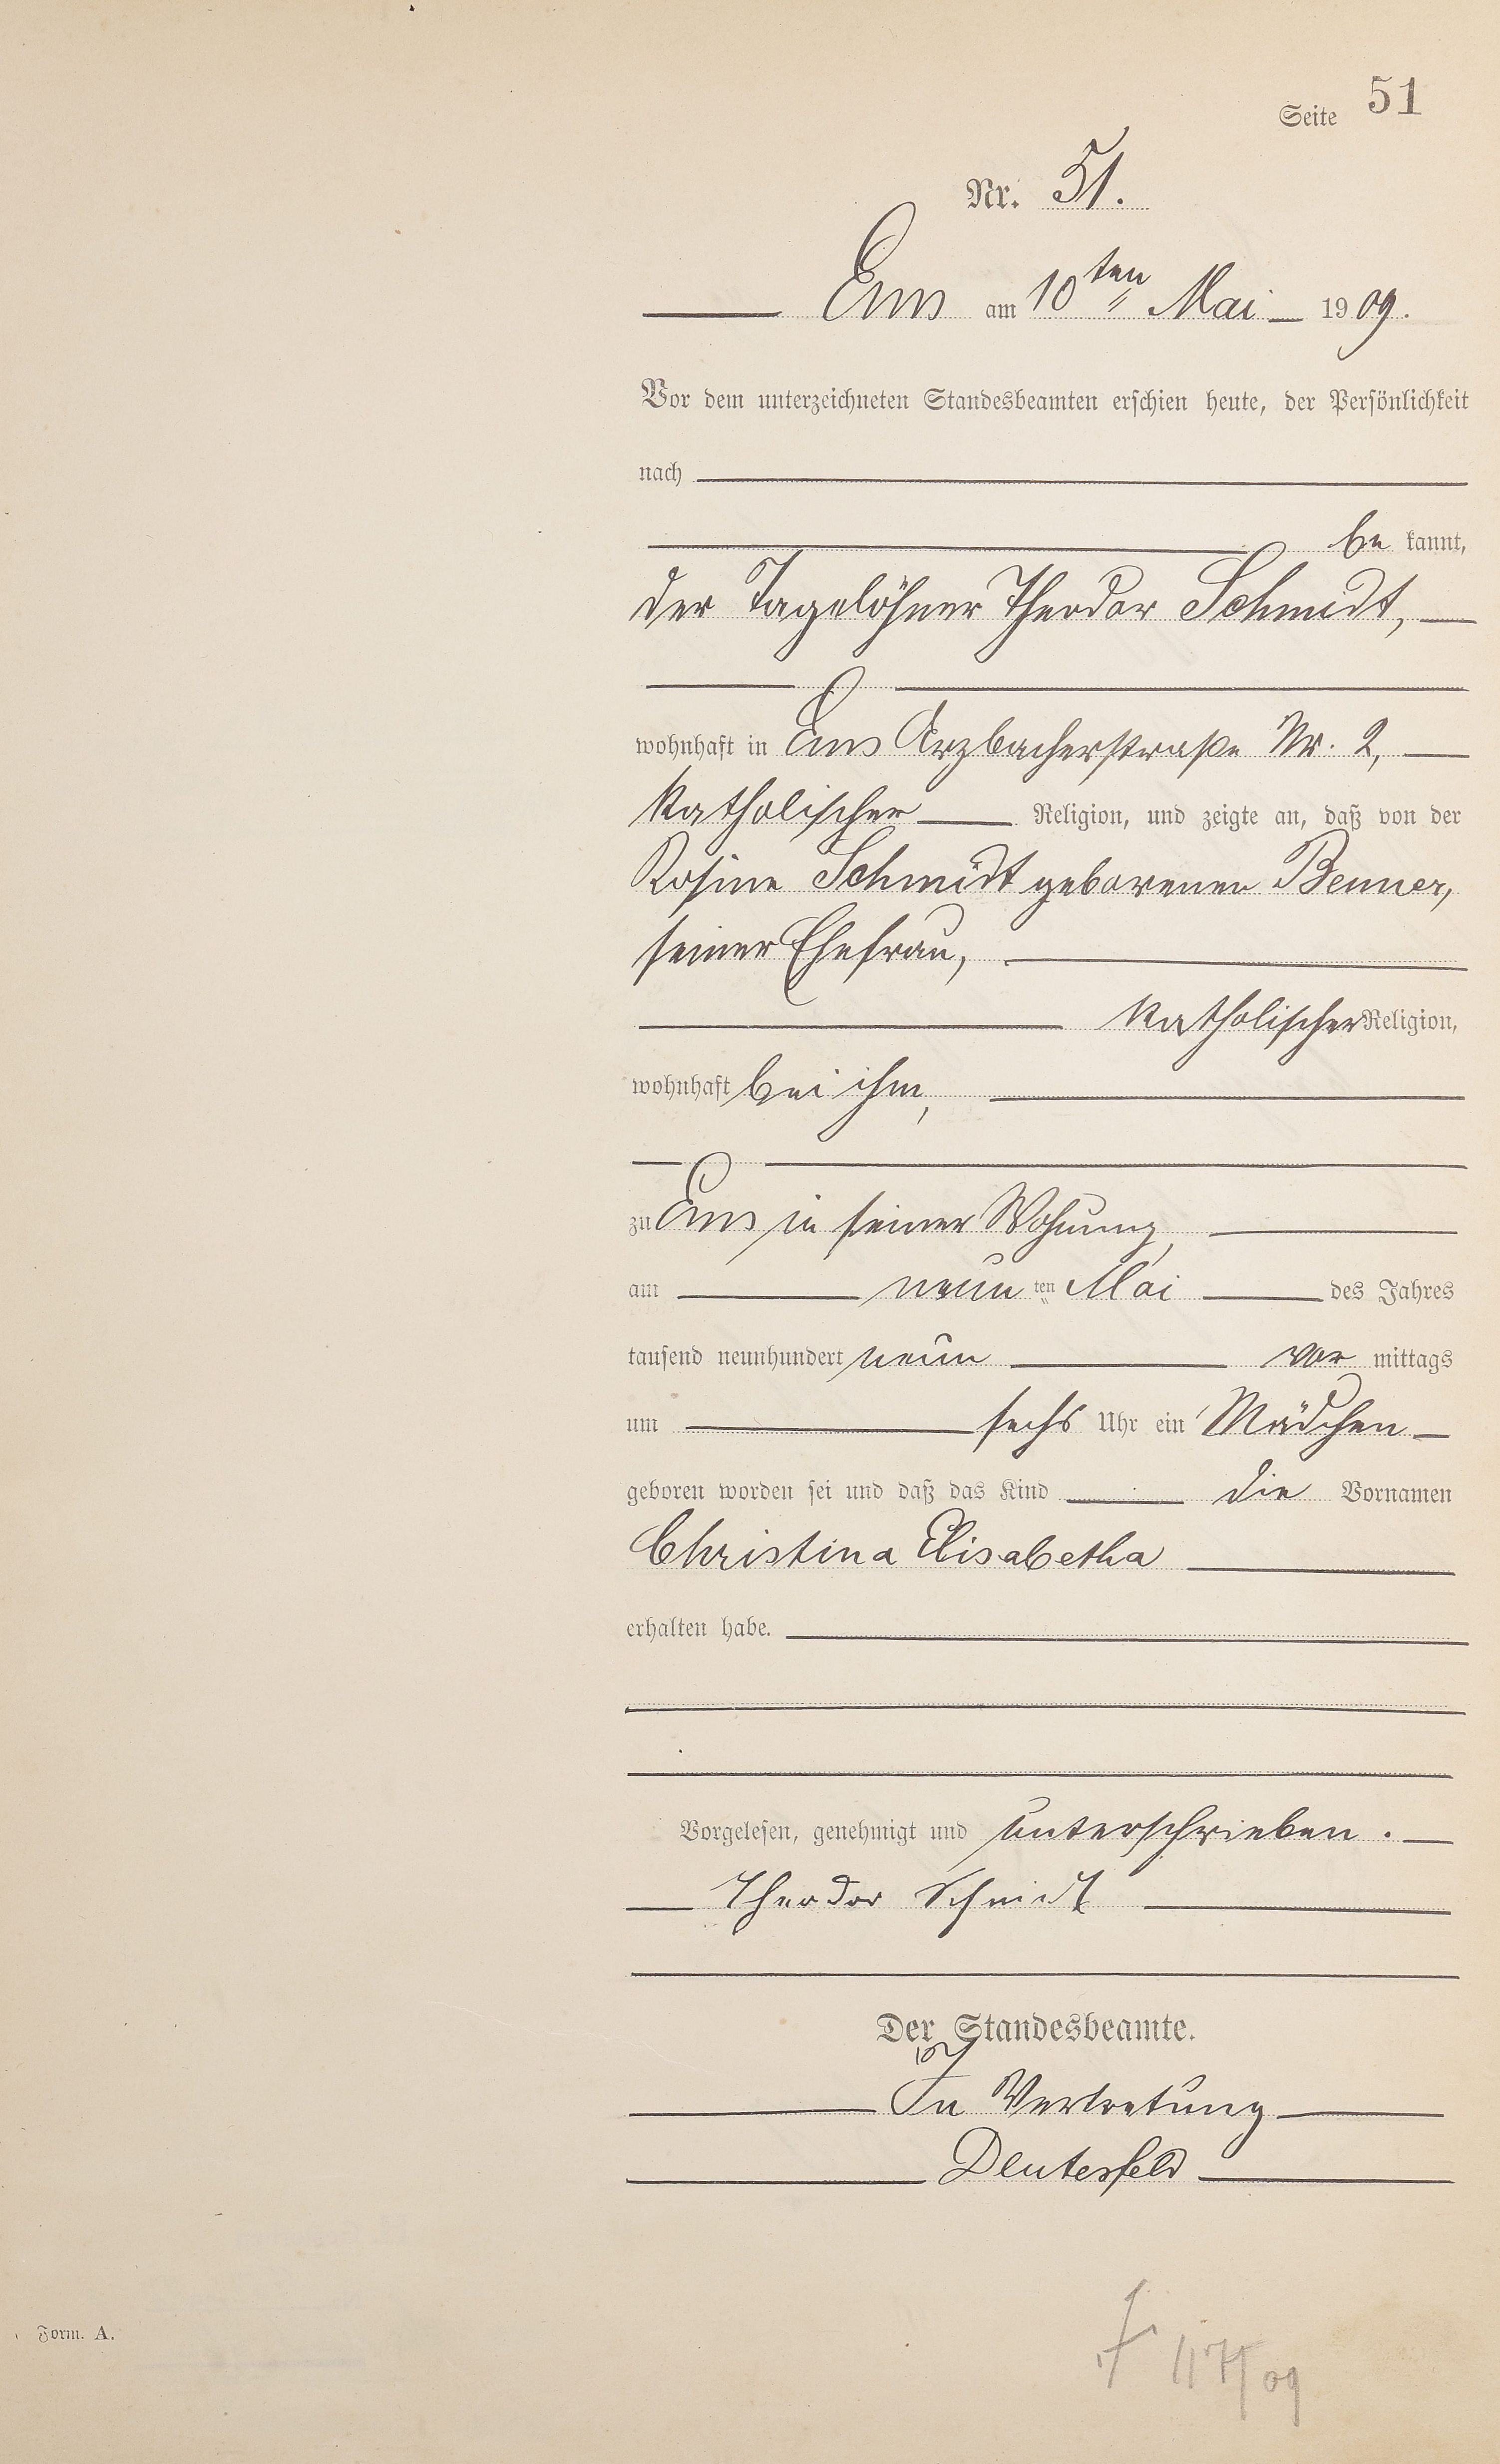 Seite 51
Nr. 51.
Ems am 10ten Mai 1909.
Vor dem unterzeichneten Standesbeamten erschien heute, der Persönlichkeit
nach
bekannt,
der Tagelöhner Theodor Schmidt,
wohnhaft in Ems Arzbacherstraße Nr. 2,
katholischer Religion, und zeigte an, daß von der
Rosine Schmidt geborenen Benner,
seiner Ehefrau,
katholischer Religion,
wohnhaft bei ihm,
zu Ems in seiner Wohnung,
am neunten Mai des Jahres
tausend neunhundert neun vormittags
um sechs Uhr ein Mädchen
geboren worden sei und daß das Kind die Vornamen
Christina Elisabetha
erhalten habe.
Vorgelesen, genehmigt und unterschrieben.
Theodor Schmidt
Der Standesbeamte.
In Vertretung
Deutesfeld
Form. A.